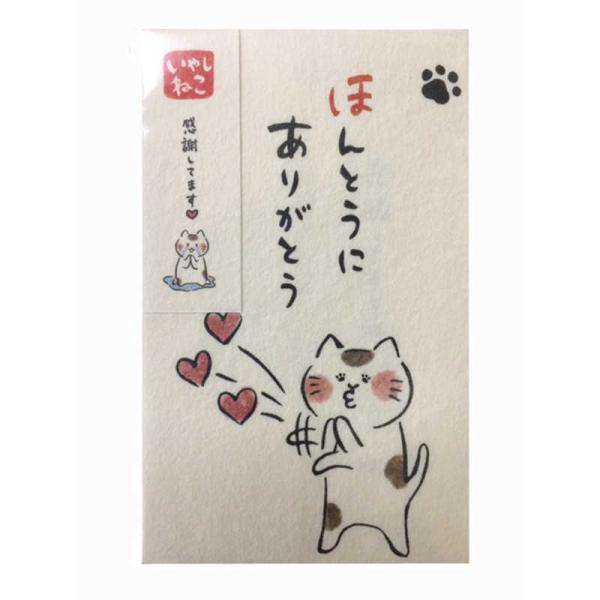 ほんとうに
ありがとう
いやし
ねこ
感謝してます